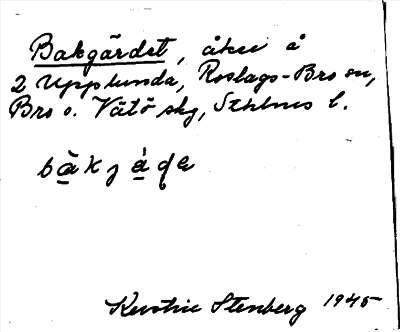 Bakgärdet, åker å
2 Upplunda, Roslags-Bro sn,
Bro o. Vätö skg, Sthlms l.
Kerstin Stenberg 1945